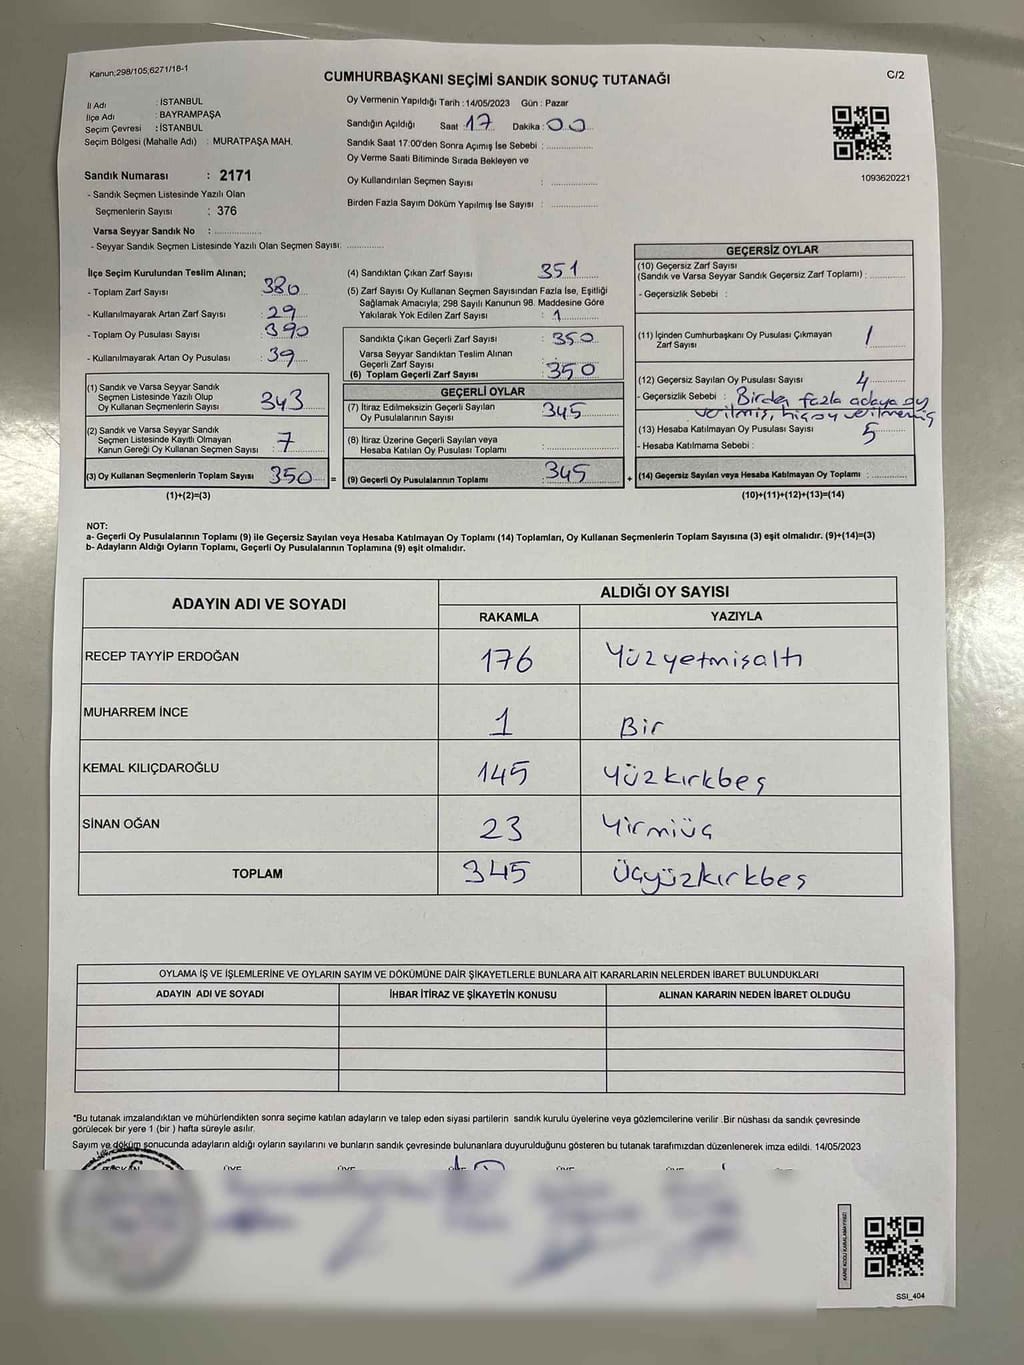 Kanun;298/105;6271/18-1
CUMHURBAŞKANI SEÇİMİ SANDIK SONUÇ TUTANAĞI
C/2
İl Adı : İSTANBUL
İlçe Adı : BAYRAMPAŞA
Seçim Çevresi : İSTANBUL
Seçim Bölgesi (Mahalle Adı) : MURATPAŞA MAH.
Sandık Numarası : 2171
- Sandık Seçmen Listesinde Yazılı Olan
Seçmenlerin Sayısı : 376
Varsa Seyyar Sandık No :
- Seyyar Sandık Seçmen Listesinde Yazılı Olan Seçmen Sayısı:
Oy Vermenin Yapıldığı Tarih : 14/05/2023 Gün : Pazar
Sandığın Açıldığı Saat : 17 Dakika : 00
Sandık Saat 17:00'den Sonra Açımış İse Sebebi :
Oy Verme Saati Bitiminde Sırada Bekleyen ve
Oy Kullandırılan Seçmen Sayısı :
Birden Fazla Sayım Döküm Yapılmış İse Sayısı :
1093620221
İlçe Seçim Kurulundan Teslim Alınan;
- Toplam Zarf Sayısı : 380
- Kullanılmayarak Artan Zarf Sayısı : 29
- Toplam Oy Pusulası Sayısı : 390
- Kullanılmayarak Artan Oy Pusulası : 39
(1) Sandık ve Varsa Seyyar Sandık
Seçmen Listesinde Yazılı Olup
Oy Kullanan Seçmenlerin Sayısı : 343
(2) Sandık ve Varsa Seyyar Sandık
Seçmen Listesinde Kayıtlı Olmayan
Kanun Gereği Oy Kullanan Seçmen Sayısı : 7
(3) Oy Kullanan Seçmenlerin Toplam Sayısı 350 =
(1)+(2)=(3)
(4) Sandıktan Çıkan Zarf Sayısı 351
(5) Zarf Sayısı Oy Kullanan Seçmen Sayısından Fazla İse, Eşitliği
Sağlamak Amacıyla, 298 Sayılı Kanunun 98. Maddesine Göre
Yakılarak Yok Edilen Zarf Sayısı : 1
Sandıkta Çıkan Geçerli Zarf Sayısı : 350
Varsa Seyyar Sandıktan Teslim Alınan
Geçerli Zarf Sayısı :
(6) Toplam Geçerli Zarf Sayısı : 350
GEÇERLİ OYLAR
(7) İtiraz Edilmeksizin Geçerli Sayılan
Oy Pusulalarının Sayısı : 345
(8) İtiraz Üzerine Geçerli Sayılan veya
Hesaba Katılan Oy Pusulası Toplamı :
(9) Geçerli Oy Pusulalarının Toplamı : 345 +
GEÇERSİZ OYLAR
(10) Geçersiz Zarf Sayısı
(Sandık ve Varsa Seyyar Sandık Geçersiz Zarf Toplamı) :
- Geçersizlik Sebebi :
(11) İçinden Cumhurbaşkanı Oy Pusulası Çıkmayan
Zarf Sayısı : 1
(12) Geçersiz Sayılan Oy Pusulası Sayısı : 4
- Geçersizlik Sebebi : Birden fazla adaya oy
verilmiş, hiç oy verilmemiş
(13) Hesaba Katılmayan Oy Pusulası Sayısı : 5
- Hesaba Katılmama Sebebi :
(14) Geçersiz Sayılan veya Hesaba Katılmayan Oy Toplamı :
(10)+(11)+(12)+(13)=(14)
NOT:
a- Geçerli Oy Pusulalarının Toplamı (9) ile Geçersiz Sayılan veya Hesaba Katılmayan Oy Toplamı (14) Toplamları, Oy Kullanan Seçmenlerin Toplam Sayısına (3) eşit olmalıdır. (9)+(14)=(3)
b- Adayların Aldığı Oyların Toplamı, Geçerli Oy Pusulalarının Toplamına (9) eşit olmalıdır.
ADAYIN ADI VE SOYADI ALDIĞI OY SAYISI
RAKAMLA YAZIYLA
RECEP TAYYİP ERDOĞAN 176 Yüzyetmişaltı
MUHARREM İNCE 1 Bir
KEMAL KILIÇDAROĞLU 145 Yüzkırkbeş
SİNAN OĞAN 23 Yirmiüç
TOPLAM 345 Üçyüzkırkbeş
OYLAMA İŞ VE İŞLEMLERİNE VE OYLARIN SAYIM VE DÖKÜMÜNE DAİR ŞİKAYETLERLE BUNLARA AİT KARARLARIN NELERDEN İBARET BULUNDUKLARI
ADAYIN ADI VE SOYADI İHBAR İTİRAZ VE ŞİKAYETİN KONUSU ALINAN KARARIN NEDEN İBARET OLDUĞU
*Bu tutanak imzalandıktan ve mühürlendikten sonra seçime katılan adayların ve talep eden siyasi partilerin sandık kurulu üyelerine veya gözlemcilerine verilir .Bir nüshası da sandık çevresinde
görülecek bir yere 1 (bir ) hafta süreyle asılır.
Sayım ve döküm sonucunda adayların aldığı oyların sayılarını ve bunların sandık çevresinde bulunanlara duyurulduğunu gösteren bu tutanak tarafımızdan düzenlenerek imza edildi. 14/05/2023
SSI_404